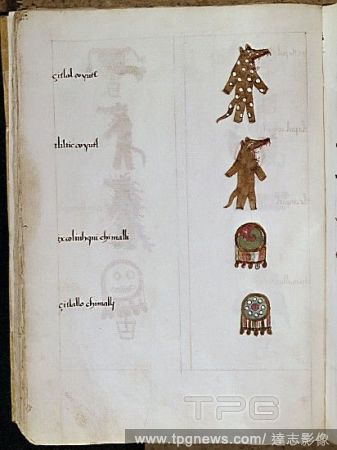 çitlal coyutl
tliltic coyutl
ixcoliuhqui chimalli
çitlallo chimalli
TPG
www.tpgnews.com/ 達志影像